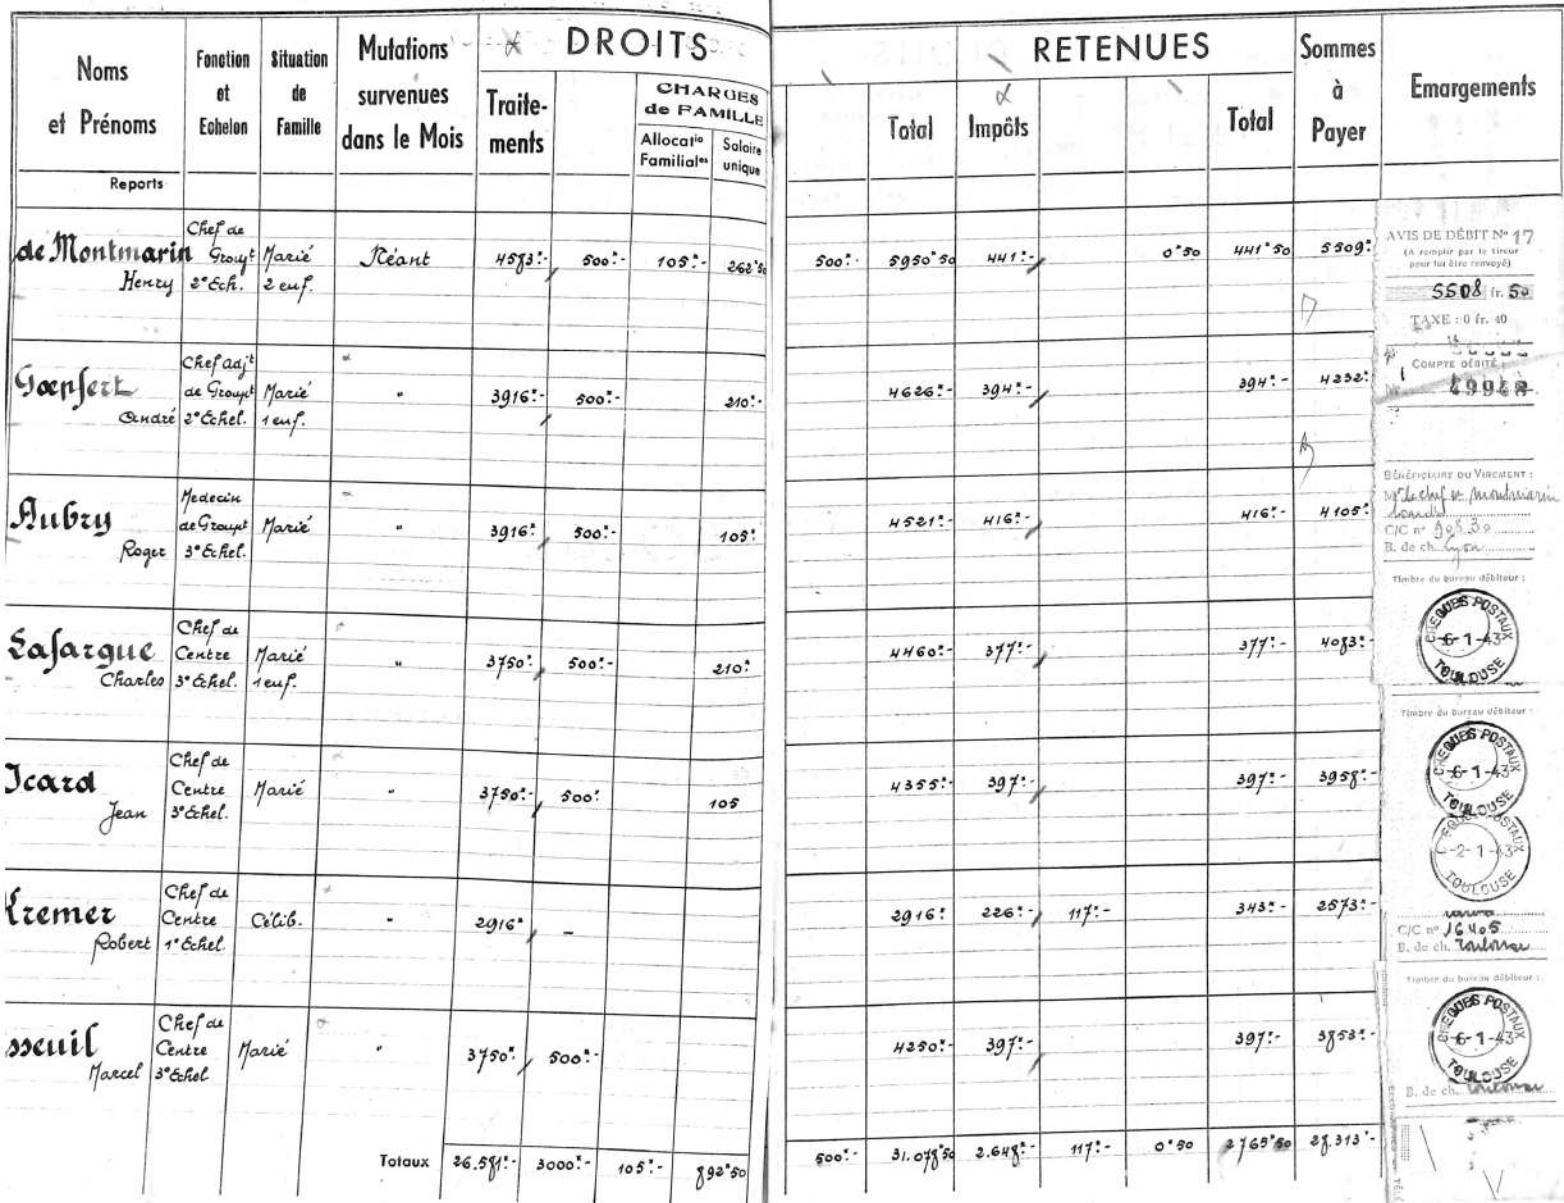 Noms et Prénoms | Fonction et Echelon | Situation de Famille | Mutations survenues dans le Mois | DROITS | RETENUES | Sommes à Payer | Emargements
Traitements | CHARGES de FAMILLE | Total | Impôts | Total
Allocatio Familiales | Salaire unique
Reports
de Montmarin Henry | Chef de Groupt 2° Ech. | Marié 2 enf. | Néant | 4583:- | 500:- | 105:- | 262°50 | 500:- | 5950°50 | 441:- | 0°50 | 441°50 | 5509:
Gœpfert André | Chef adjt de Groupt 2° Echel. | Marié 1 enf. | " | 3916:- | 500:- | 210:- | 4626:- | 394:- | 394:- | 4232:
Aubry Roger | Medecin de Groupt 3° Echel. | Marié | " | 3916: | 500:- | 105: | 4521:- | 416:- | 416:- | 4105:
Lafargue Charles | Chef de Centre 3° Echel. | Marié 1 enf. | " | 3750: | 500:- | 210: | 4460:- | 377:- | 377:- | 4083:-
Icard Jean | Chef de Centre 3° Echel. | Marié | " | 3750:- | 500: | 105 | 4355:- | 397:- | 397:- | 3958:-
Kremer Robert | Chef de Centre 1° Echel. | Célib. | " | 2916: | - | 2916: | 226:- | 117:- | 343:- | 2573:-
sseuil Marcel | Chef de Centre 3° Echel | Marié | " | 3750: | 500:- | 4250:- | 397:- | 397:- | 3853:-
Totaux | 26.581:- | 3000:- | 105:- | 892°50 | 500:- | 31.078°50 | 2.648:- | 117:- | 0°50 | 2765°50 | 28.313:-
AVIS DE DÉBIT N° 17
(A remplir par le tireur
pour lui être renvoyé)
5508 fr. 50
TAXE : 0 fr. 40
COMPTE DÉBITÉ :
BÉNÉFICIAIRE DU VIREMENT :
C/C n°
B. de ch. Lyon
Timbre du bureau débiteur :
CHEQUES POSTAUX
6-1-43
TOULOUSE
Timbre du bureau débiteur :
CHEQUES POSTAUX
6-1-43
TOULOUSE
CHEQUES POSTAUX
-2-1-43
TOULOUSE
C/C n° 16405
B. de ch. Toulouse
Timbre du bureau débiteur :
CHEQUES POSTAUX
6-1-43
TOULOUSE
B. de ch. Toulouse